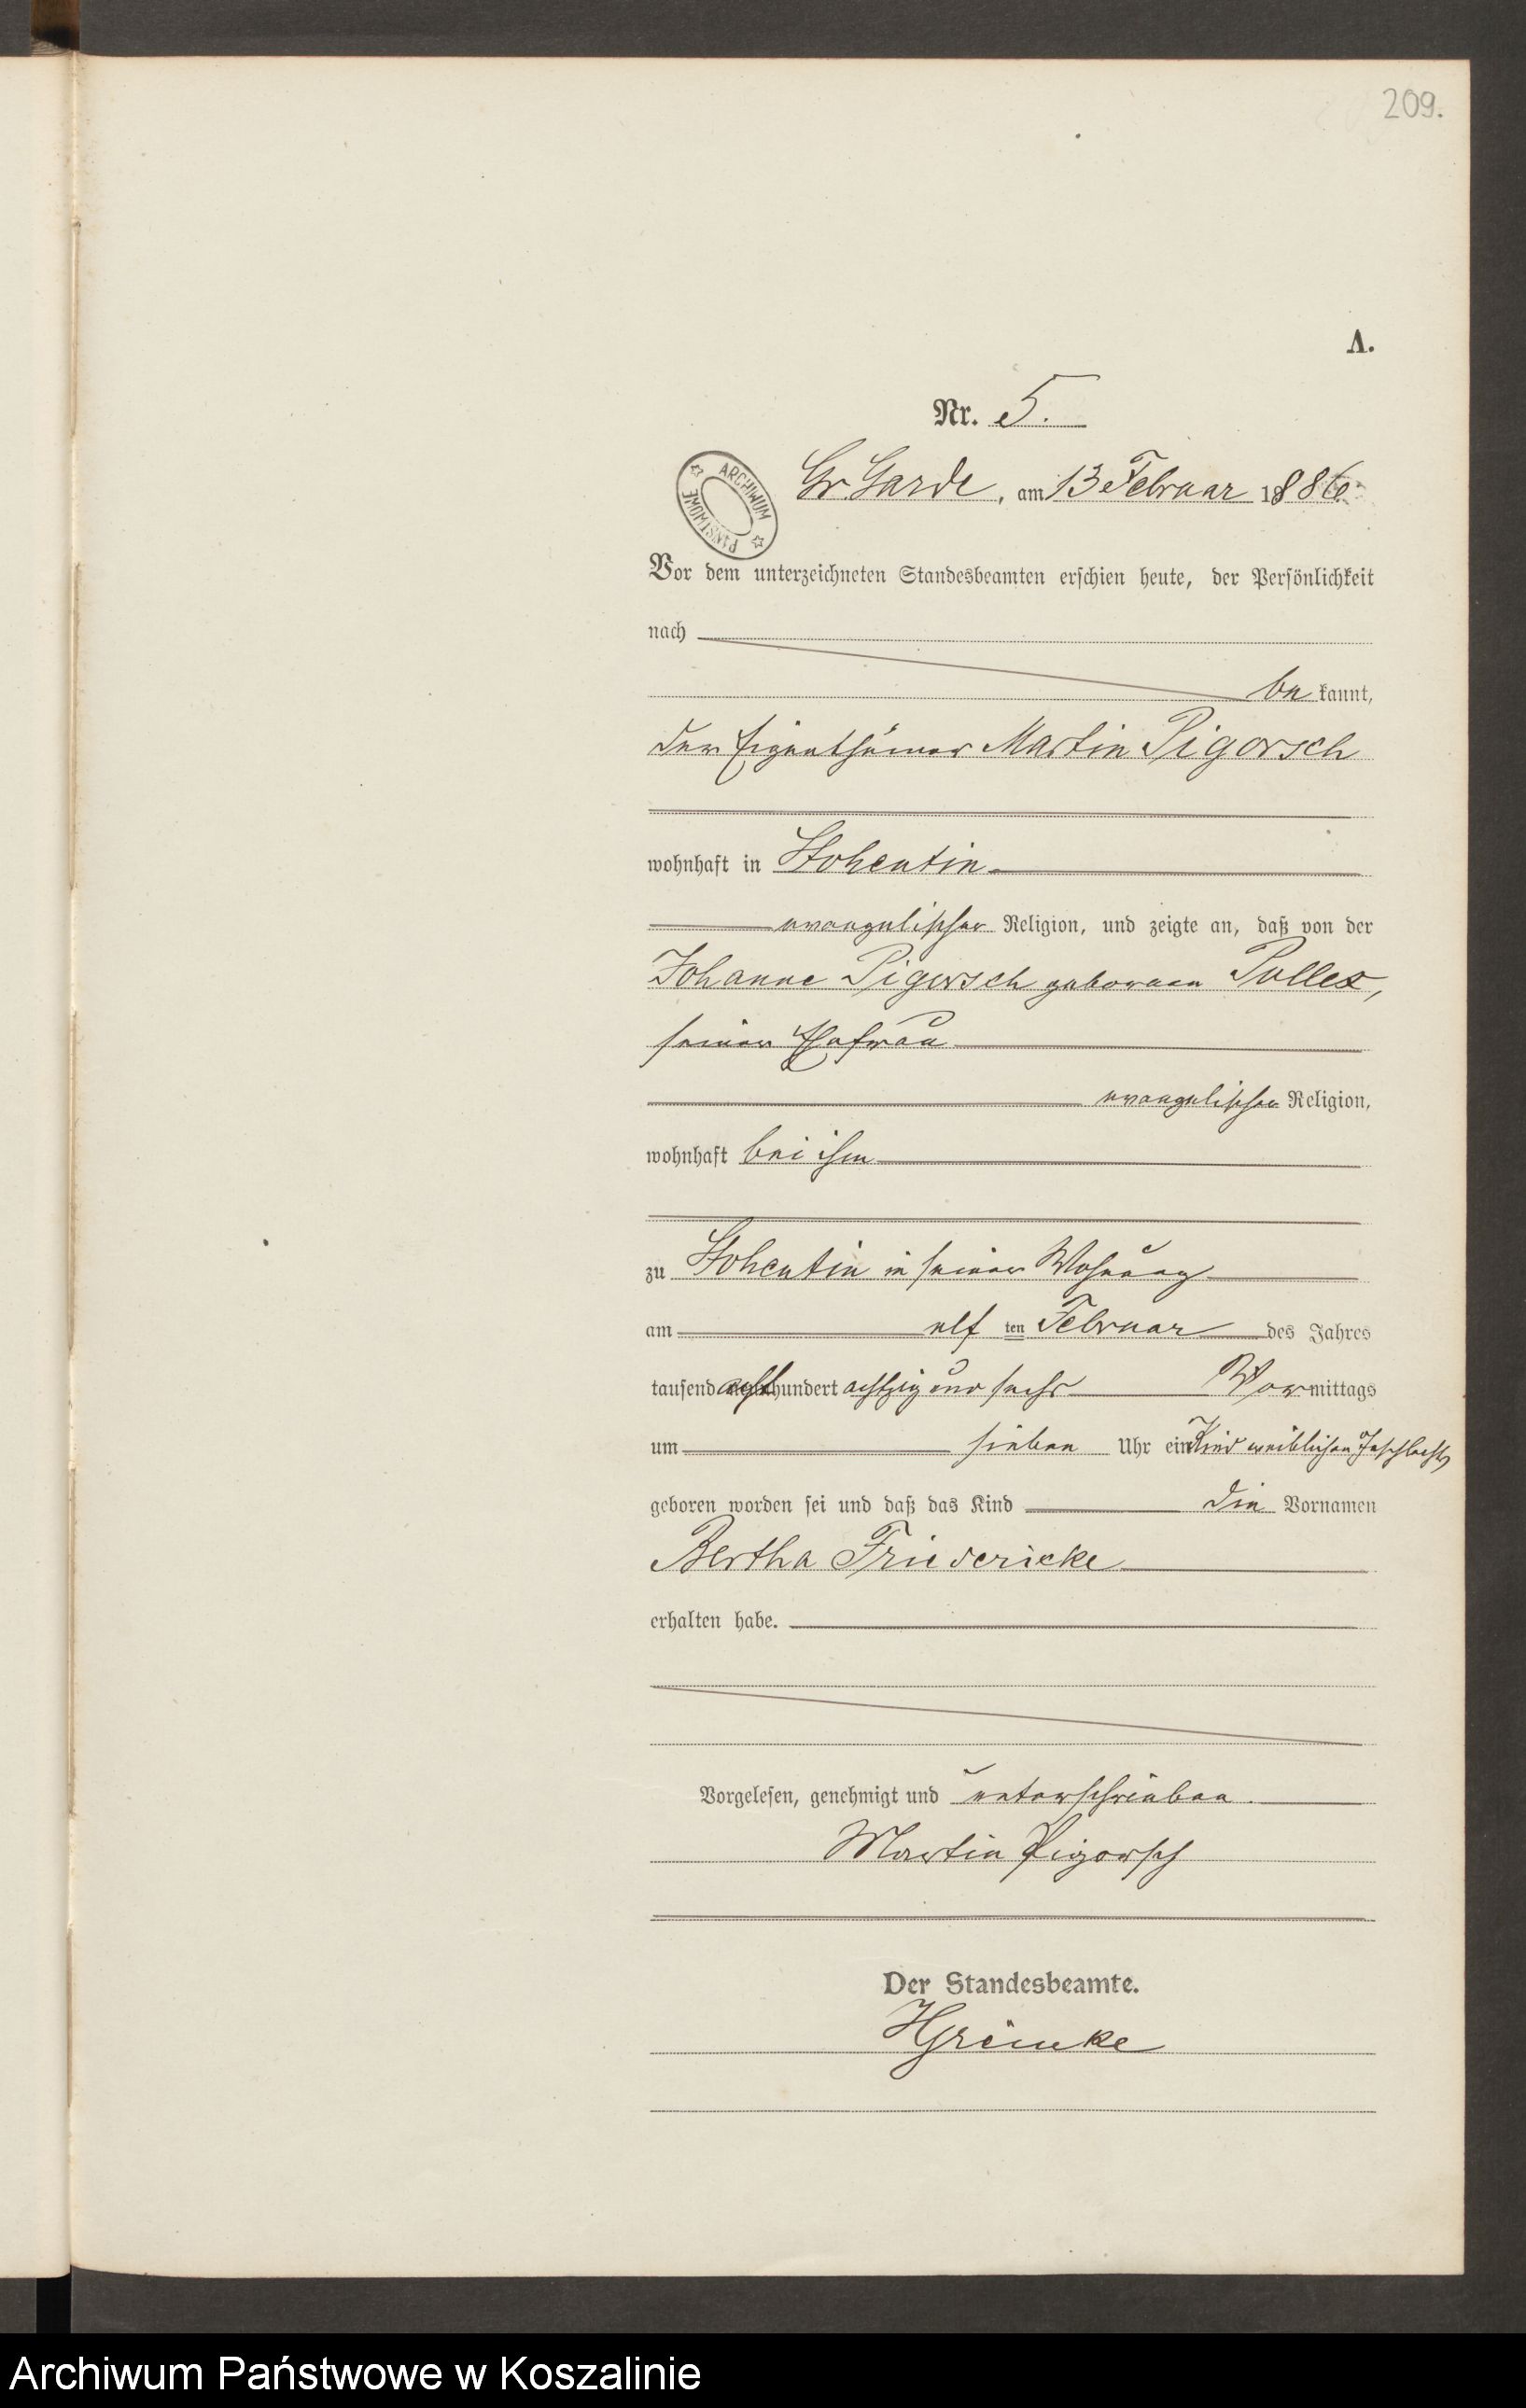 209.
A.
Nr. 5.
ARCHIWUM PAŃSTWOWE
Gr. Garde, am 13 Februar 1886
Vor dem unterzeichneten Standesbeamten erschien heute, der Persönlichkeit
nach
be kannt,
der Eigenthümer Martin Pigorsch
wohnhaft in Stohentin
evangelischer Religion, und zeigte an, daß von der
Johanne Pigorsch geborenen Pollex,
seiner Ehefrau
evangelischer Religion,
wohnhaft bei ihm
zu Stohentin in seiner Wohnung
am elf ten Februar des Jahres
tausend acht hundert achtzig und sechs Vormittags
um sieben Uhr ein Kind weiblichen Geschlechts
geboren worden sei und daß das Kind die Vornamen
Bertha Friedericke
erhalten habe.
Vorgelesen, genehmigt und unterschrieben.
Martin Pigorsch
Der Standesbeamte.
Archiwum Państwowe w Koszalinie